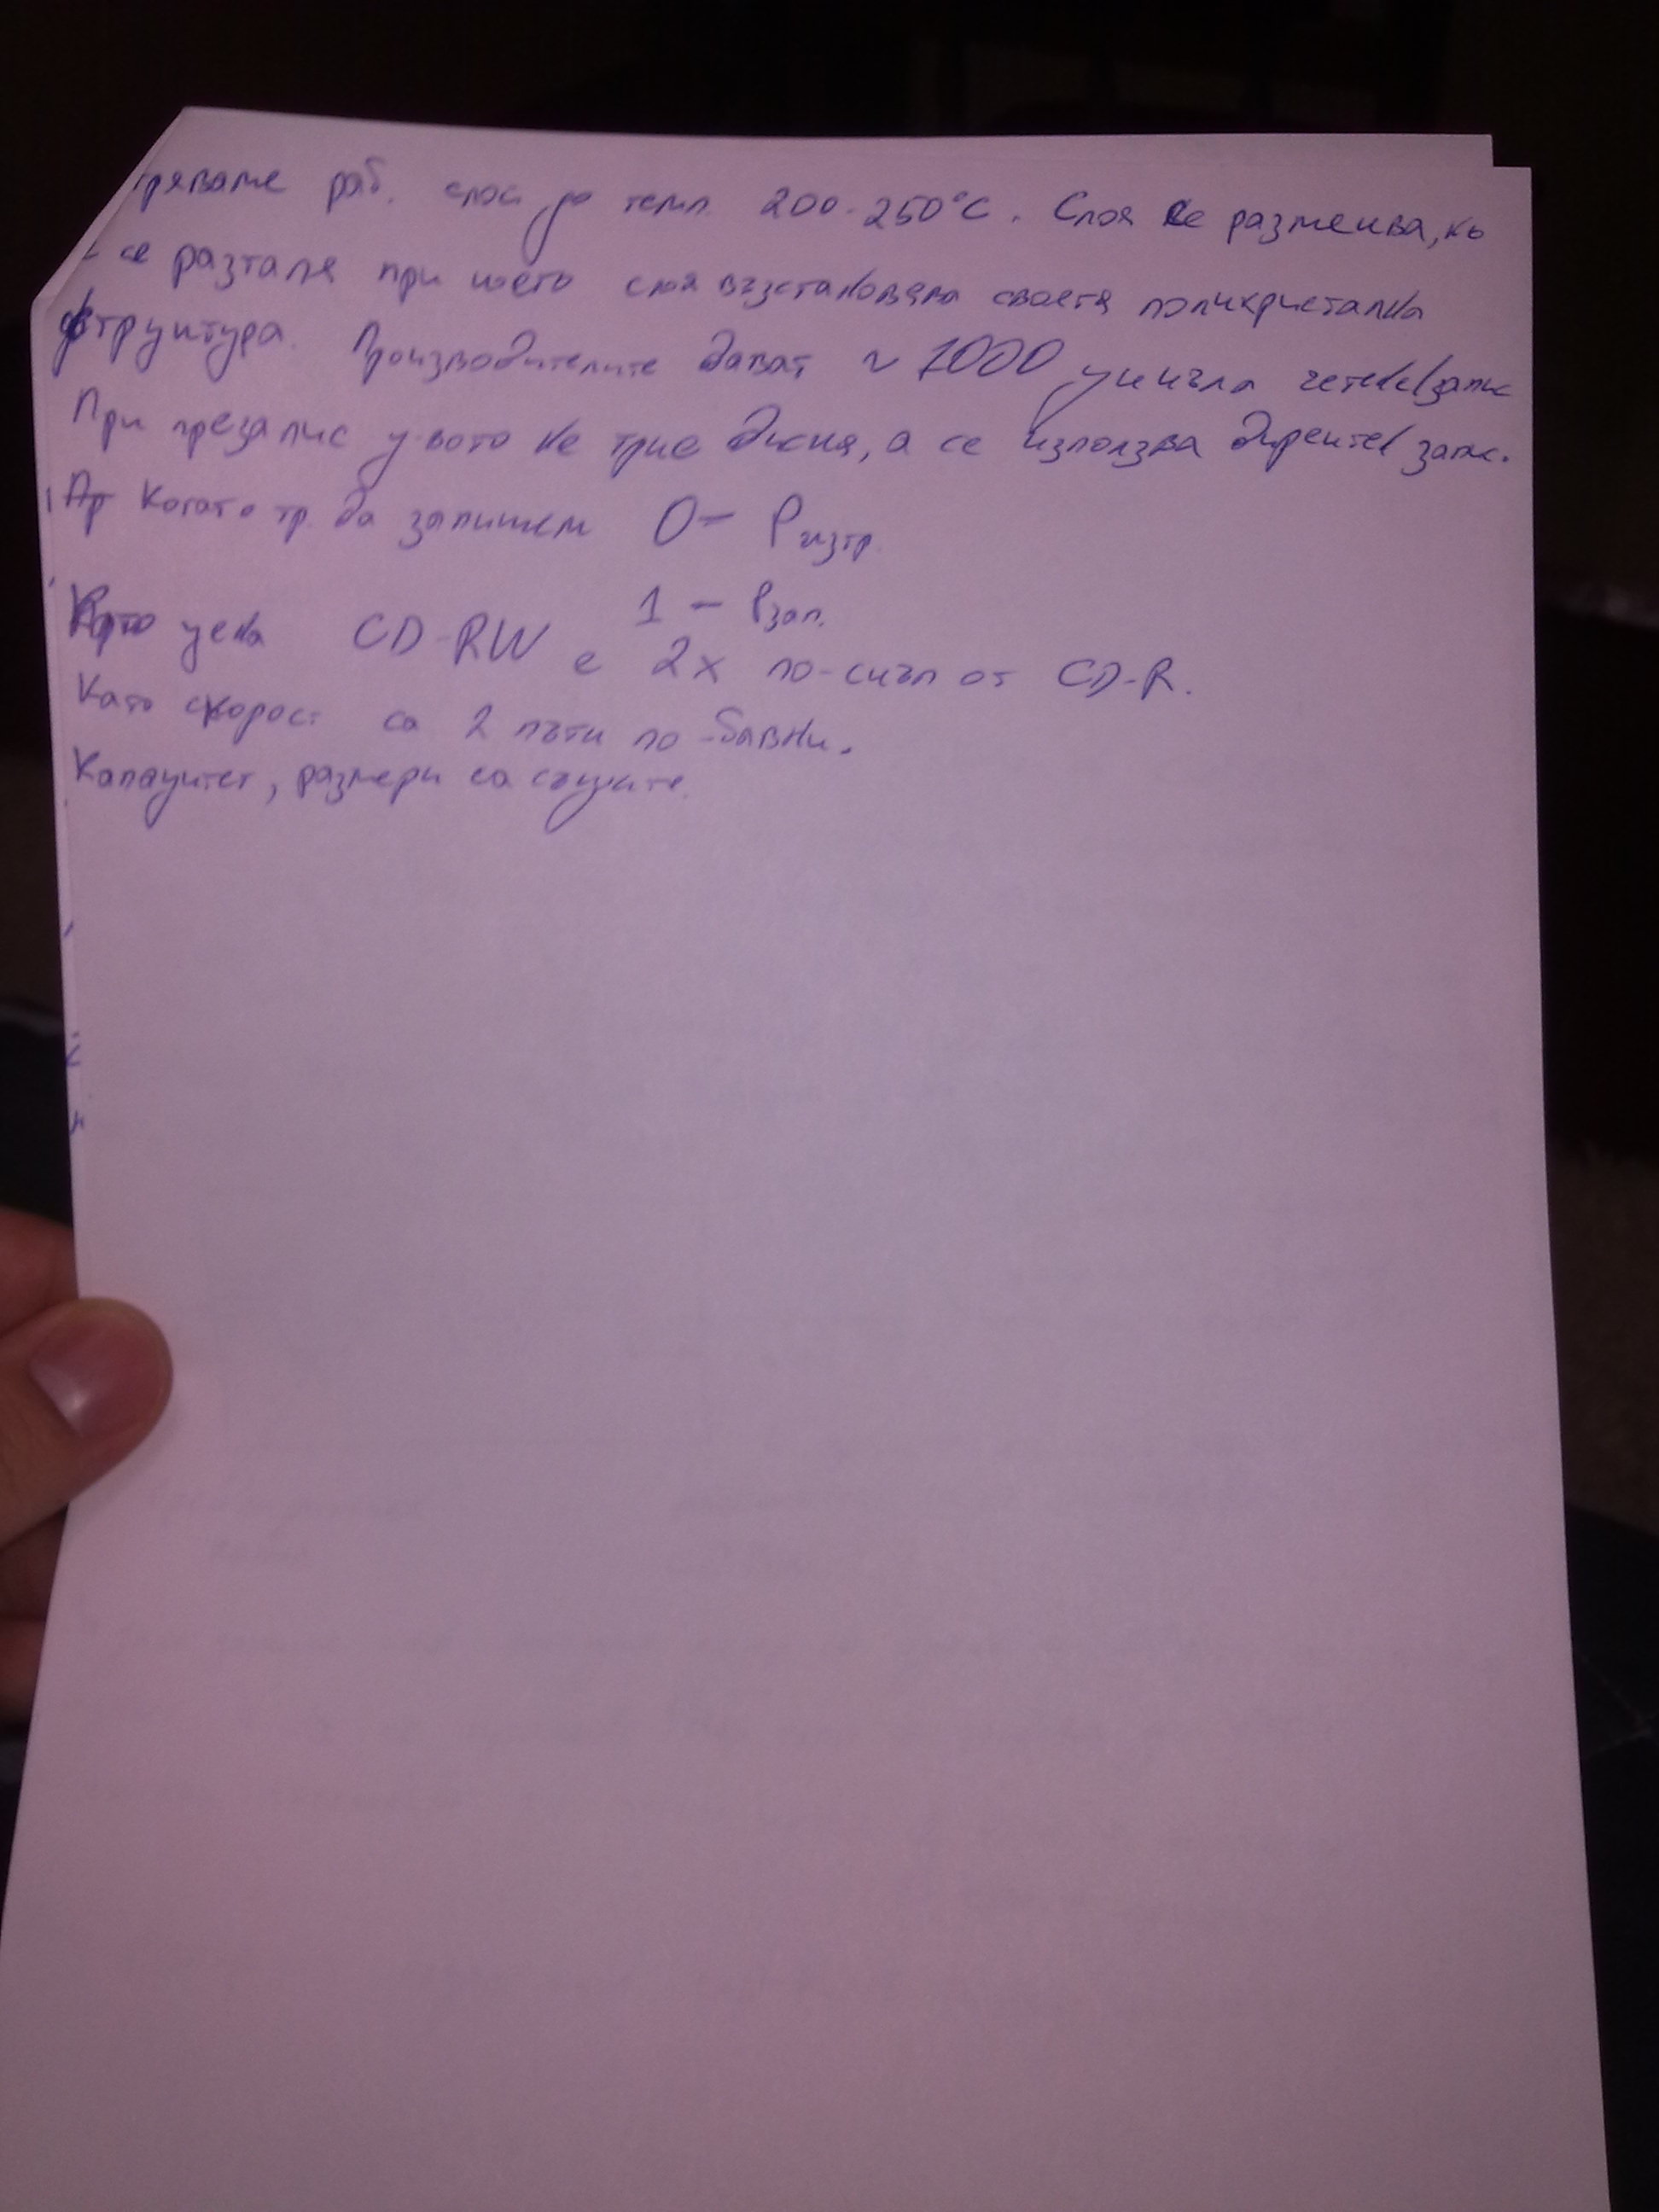 гряваме раб. слой до темп. 200-250°C. Слоя се размеква, но
се разтапя при което слоя възстановява своята поликристална
структура. Производителите дават ~ 1000 цикъла четене/запис
При презапис у-вото не трие диска, а се използва директен запис.
Когато тр. да запишем 0 - Pизтр.
1 - Pзап.
Като цена CD-RW е 2x по-скъп от CD-R.
Като скорост са 2 пъти по-бавни.
Капацитет, размери са същите.